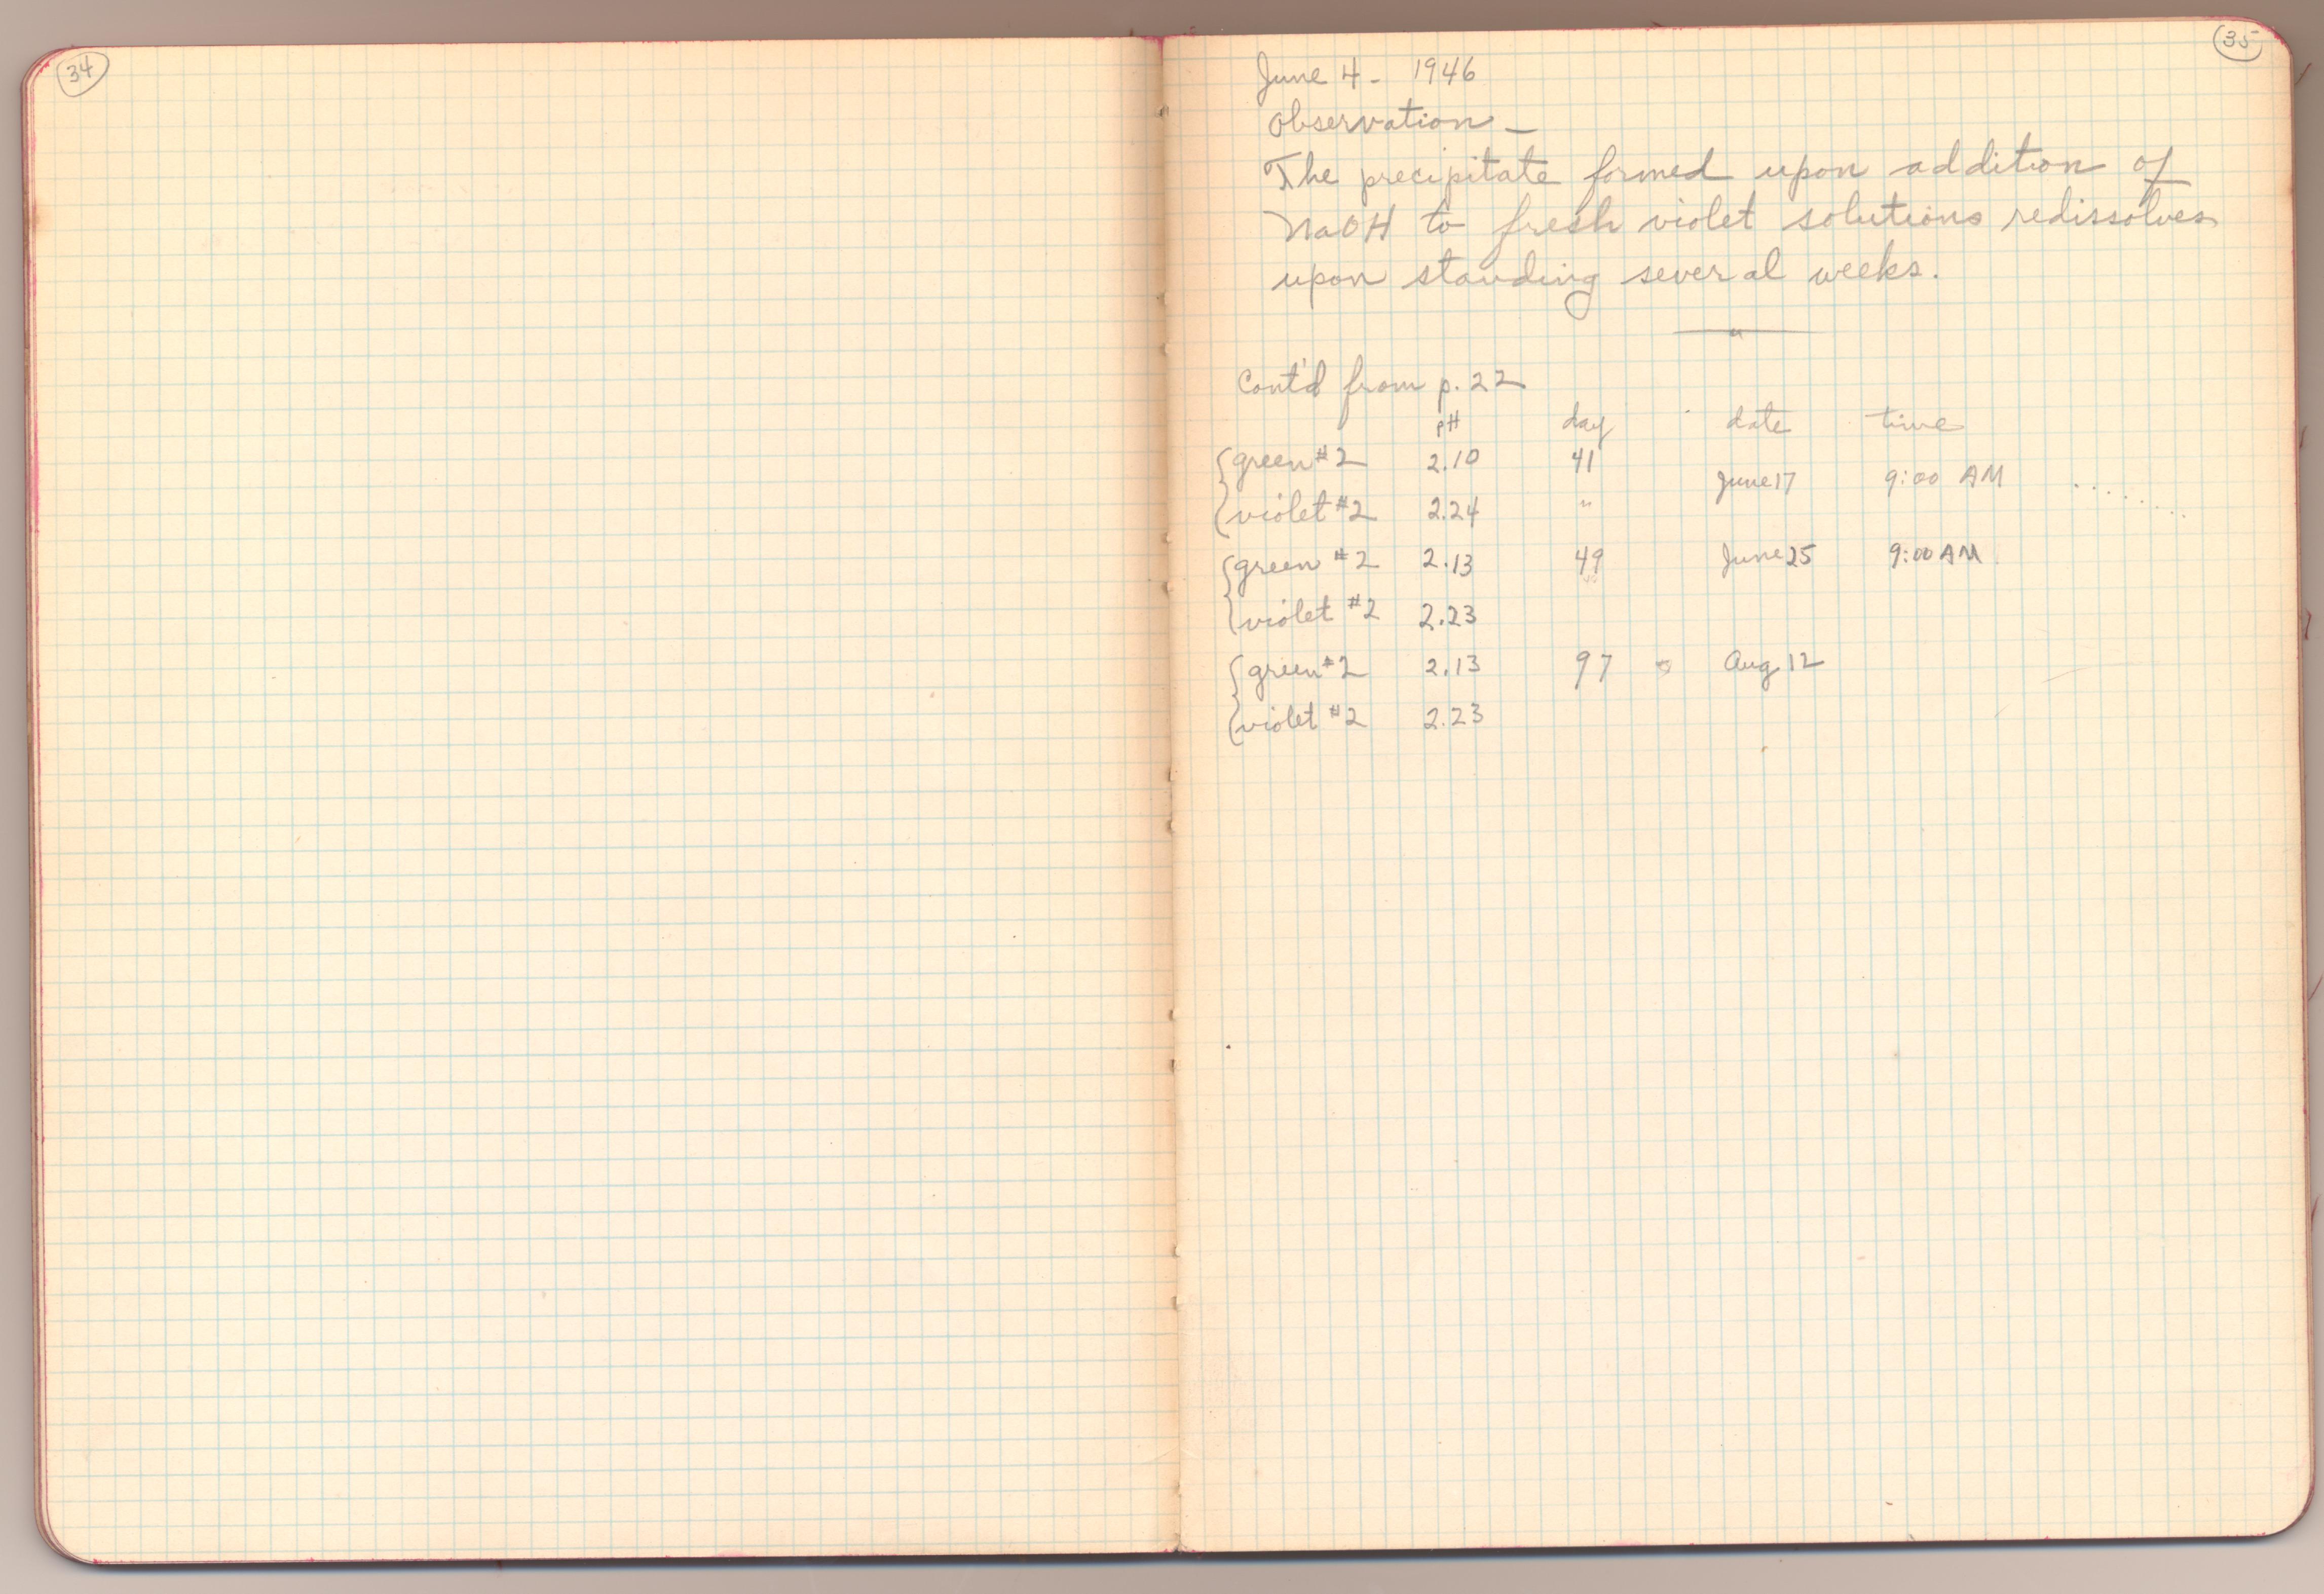 34
35
June 4 - 1946
Observation —
The precipitate formed upon addition of
NaOH to fresh violet solutions redissolves
upon standing several weeks.
Cont'd from p. 22
pH day date time
{green #2 2.10 41 June 17 9:00 AM .....
{violet #2 2.24 "
{green #2 2.13 49 June 25 9:00 AM
{violet #2 2.23
{green #2 2.13 97 Aug 12
{violet #2 2.23